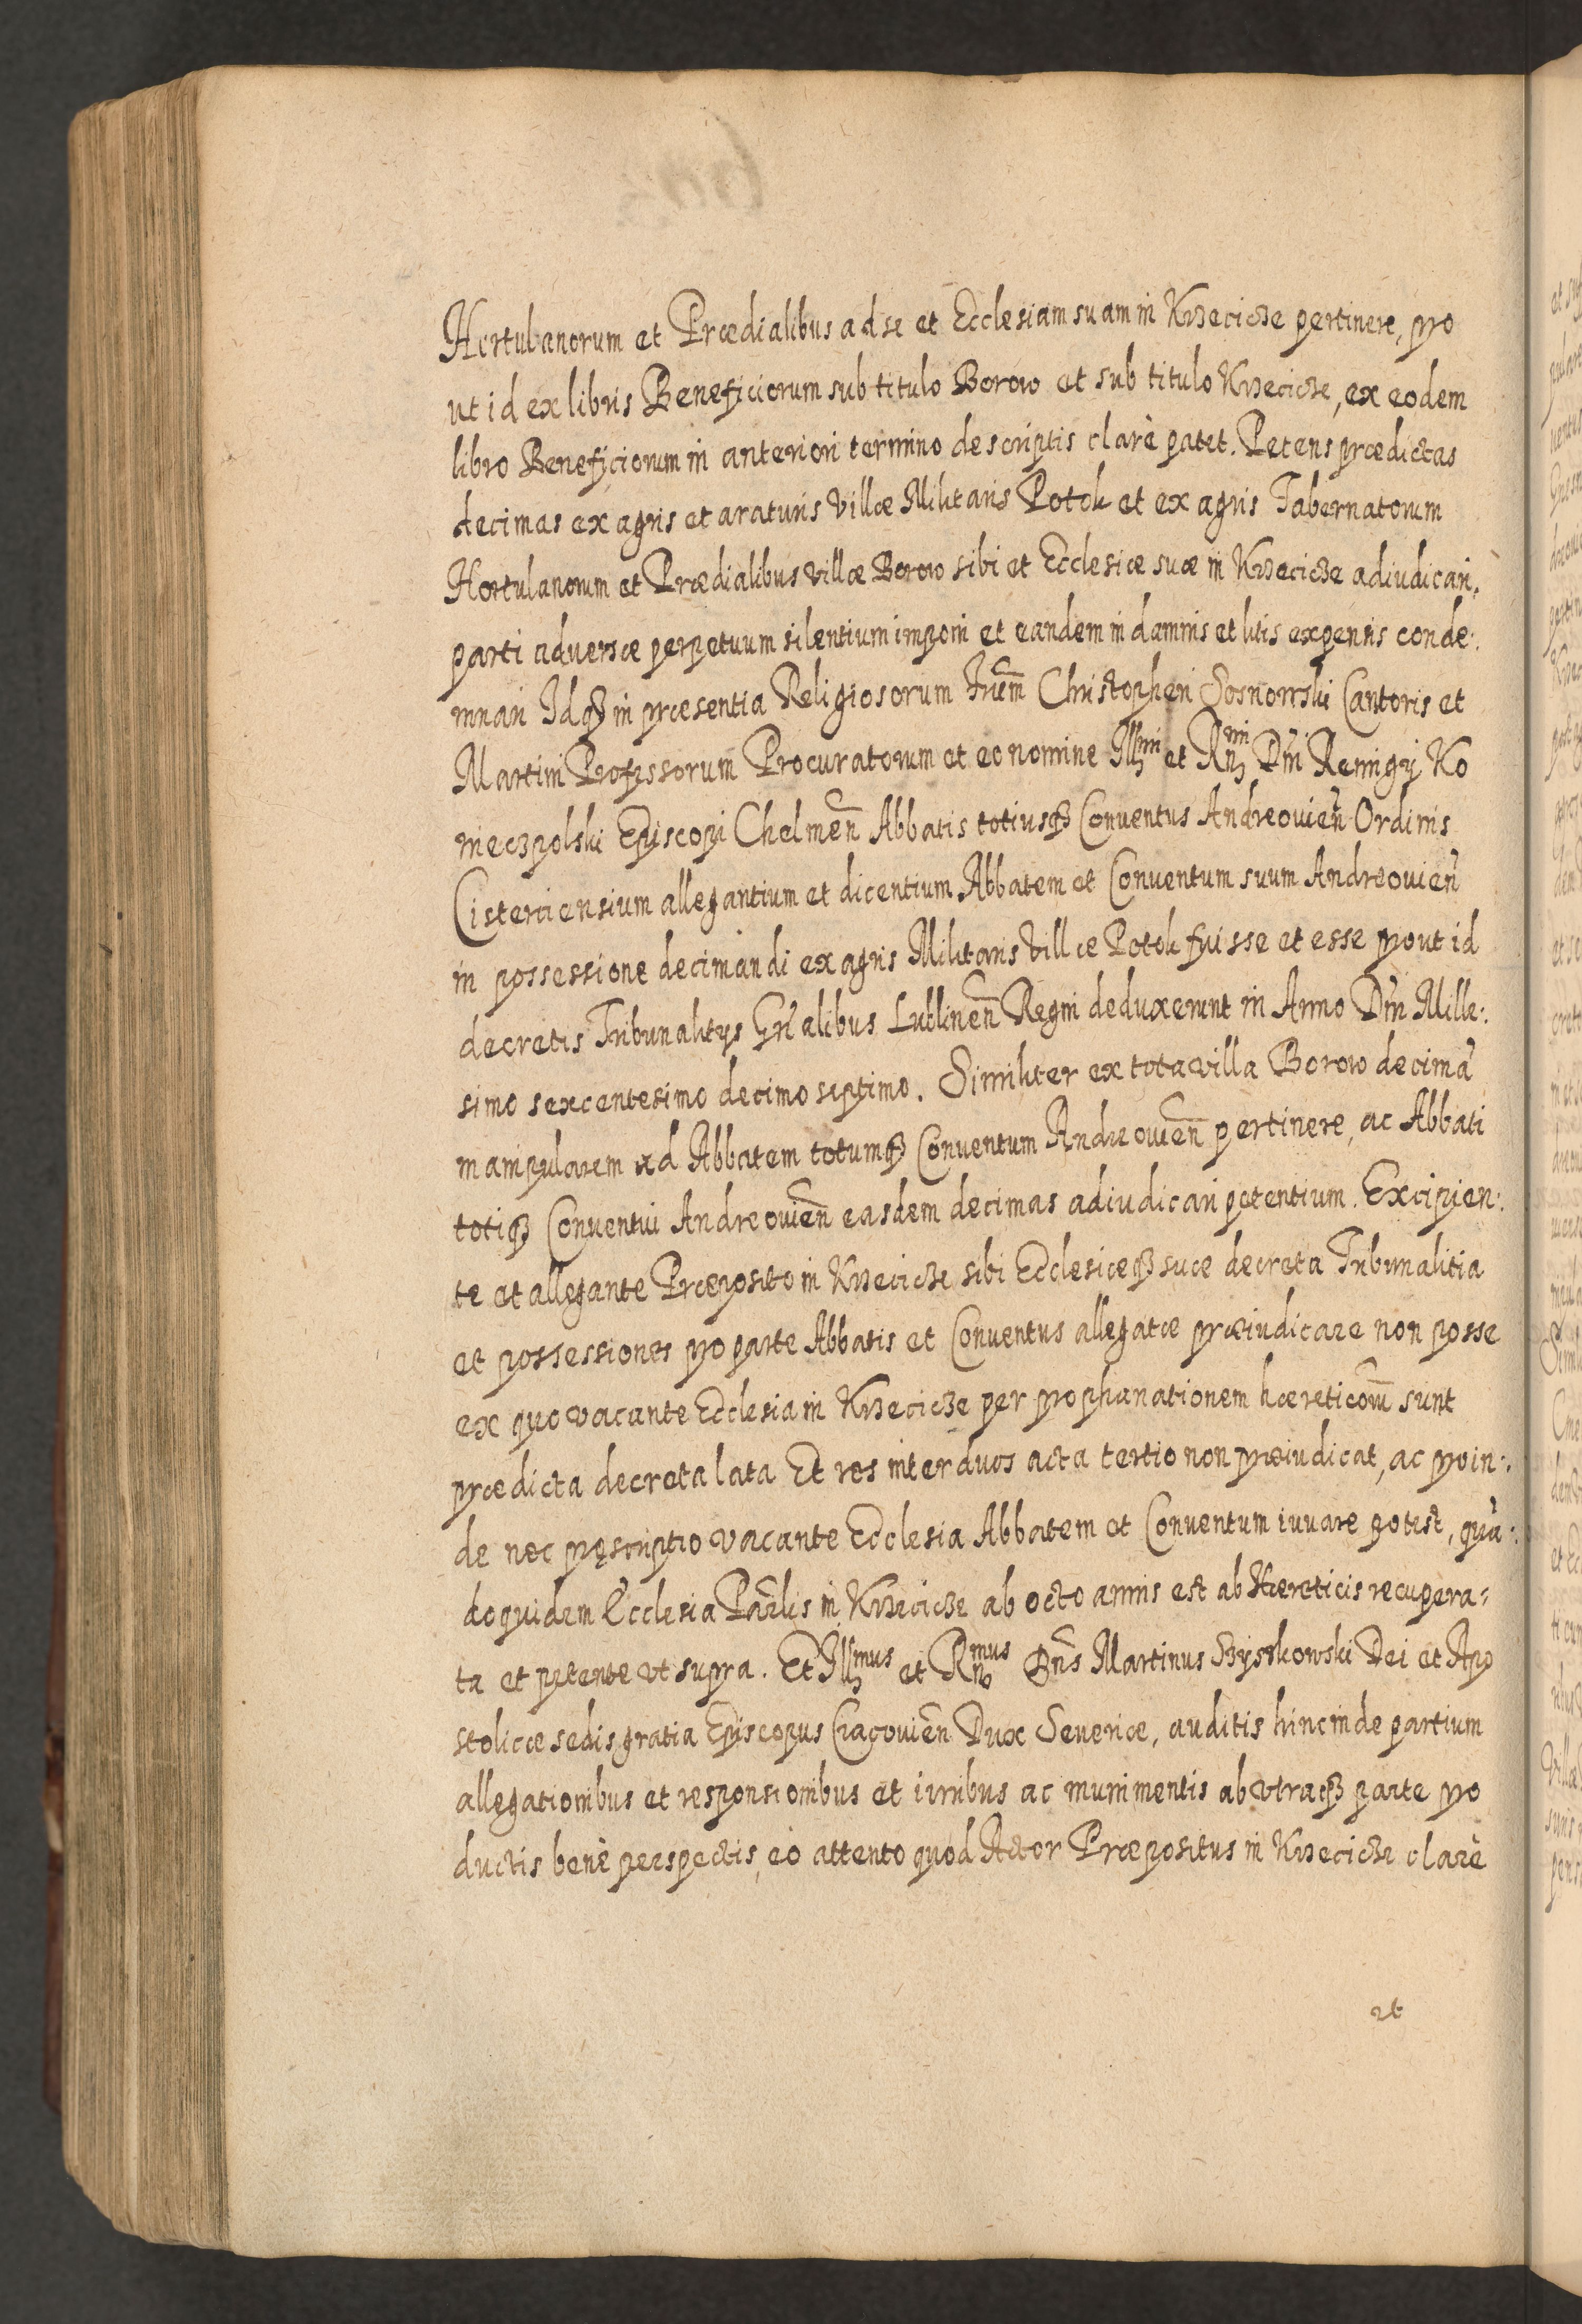 Hortulanorum et Prædialibus ad se et Ecclesiam suam in Krzecicze pertinere, pro
ut id ex libris Beneficiorum sub titulo Borow et sub titulo Krzecicze, ex eodem
libro Beneficiorum in anteriori termino descriptis clarè patet. Petens prædictas
decimas ex agris et araturis villæ Militaris Potok et ex agris Tabernatorum
Hortulanorum et Prædialibus villæ Borow sibi et Ecclesiæ suæ in Krzecicze adiudicari,
parti adversæ perpetuum silentium imponi et eandem in damnis et litis expensis conde:
mnari Idqȝ in præsentia Religiosorum Frūm Christopheri Sosnowski Cantoris et
Martini Professorum Procuratorum et eo nomine Illmi et Rñdmi Dni Remigij Ko
nieczpolski Episcopi Chelmeñ Abbatis totiusqȝ Conventus Andreovieñ Ordinis
Cisterciensium allegantium et dicentium Abbatem et Conventum suum Andreovieñ
in possessione decimandi ex agris Militaris villæ Potok fuisse et esse prout id
decretis Tribunalitijs Gñalibus Lublineñ Regni deduxerunt in Anno Dni Mille:
simo sexcentesimo decimo septimo. Similiter ex tota villa Borow decimã
manipularem ad Abbatem totumqȝ Conventum Andreovieñ pertinere, ac Abbati
totiqȝ Conventui Andreovieñ easdem decimas adiudicari petentium. Excipien:
te et allegante Præposito in Krzecicze sibi Ecclesiæqȝ suæ decreta Tribunalitia
et possessiones pro parte Abbatis et Conventus allegatæ præiudicare non posse
ex quo vacante Ecclesia in Krzecicze per prophanationem hæreticorū sunt
prædicta decreta lata Et res inter duos acta tertio non præiudicat, ac proin:
de nec pręscriptio vacante Ecclesia Abbatem et Conventum iuvare potest, quã:
doquidem Ecclesia Parlis in Krzecicze ab octo annis est ab Hæreticis recupera=
ta et petente vt supra. Et Illmus et Rndmus Dns Martinus Szyszkowski Dei et Apo
stolicæ sedis gratia Episcopus Cracovieñ Dux Severiæ, auditis hinc inde partium
allegationibus et responsionibus et iuribus ac munimentis ab vtraqȝ parte pro
ductis benè perspectis, eò attento quod Actor Præpositus in Krzecicze clarè
et